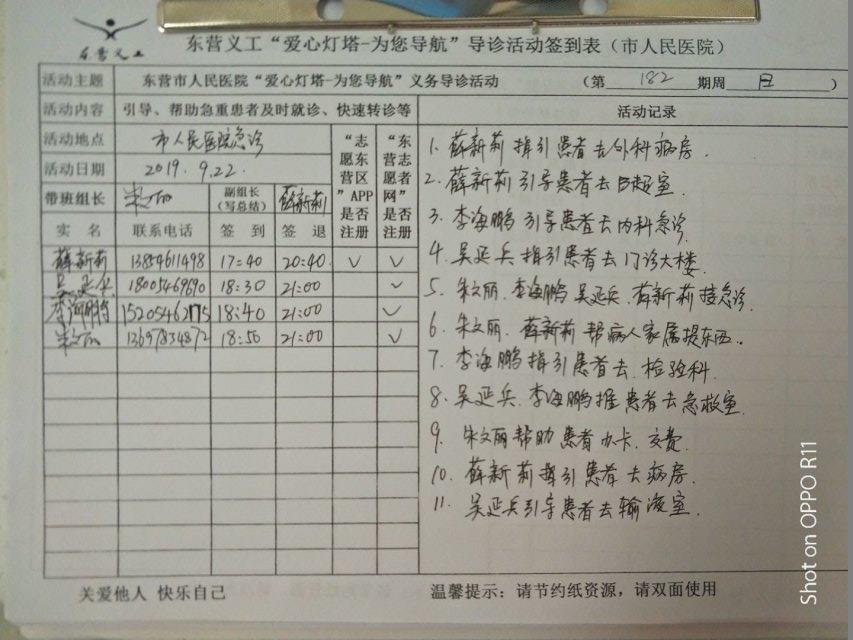 东营义工
东营义工“爱心灯塔-为您导航”导诊活动签到表（市人民医院）
活动主题 东营市人民医院“爱心灯塔-为您导航”义务导诊活动 （第 182 期周 日 ）
活动内容 引导、帮助急重患者及时就诊、快速转诊等 活动记录
活动地点 市人民医院急诊
活动日期 2019.9.22.
带班组长 朱文丽 副组长（写总结） 薛新莉
“志愿东营区”APP是否注册
“东营志愿者网”是否注册
实名 联系电话 签到 签退
薛新莉 13854611498 17:40 20:40 ∨ ∨
吴延兵 18005469690 18:30 21:00 ∨
李海鹏 15205462775 18:40 21:00 ∨
朱文丽 13697834872 18:50 21:00 ∨
1. 薛新莉指引患者去外科病房.
2. 薛新莉引导患者去B超室.
3. 李海鹏引导患者去内科急诊.
4. 吴延兵指引患者去门诊大楼.
5. 朱文丽.李海鹏.吴延兵.薛新莉接急诊.
6. 朱文丽.薛新莉帮病人家属提东西..
7. 李海鹏指引患者去.检验科.
8. 吴延兵.李海鹏推患者去急救室.
9. 朱文丽帮助患者办卡.交费.
10. 薛新莉指引患者去病房.
11. 吴延兵引导患者去输液室.
关爱他人 快乐自己 温馨提示：请节约纸资源，请双面使用
Shot on OPPO R11